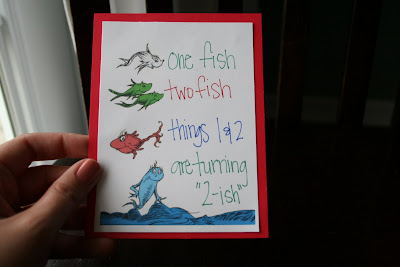 one fish
two fish
things 1 & 2
are turning
"2-ish"